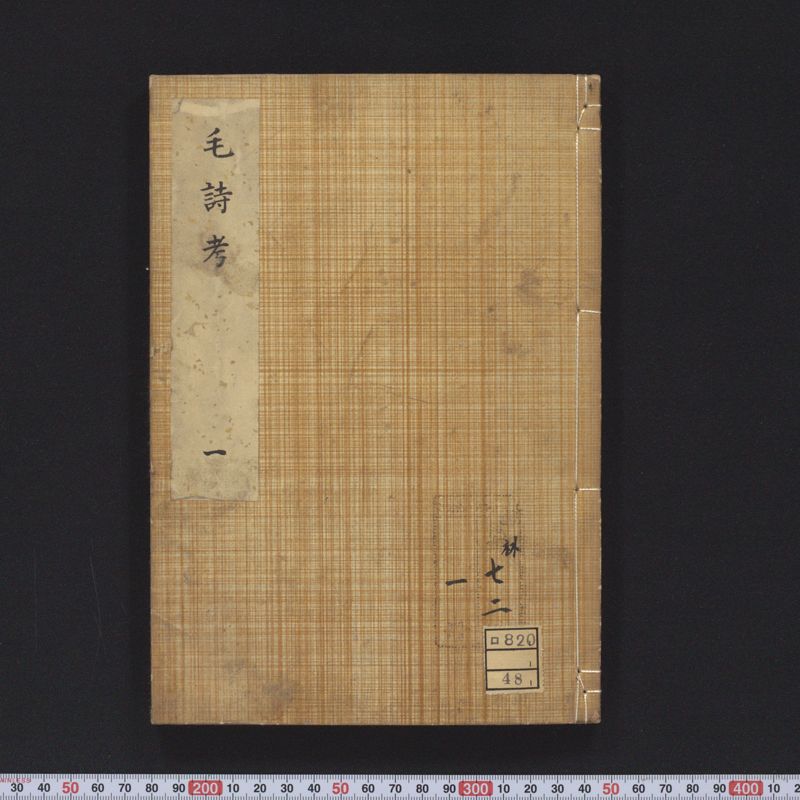 毛詩考
一
林
七二
一
ロ820
1
48 1
30 40 50 60 70 80 90 200 10 20 30 40 50 60 70 80 90 300 10 20 30 40 50 60 70 80 90 400 10